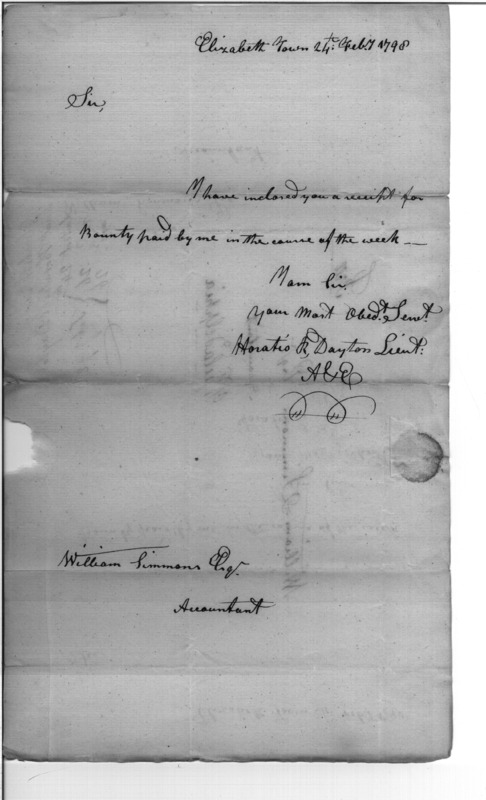 Elizabeth Town 24th. Feby. 1798
Sir,
I have inclosed you a receipt for
Bounty paid by me in the course of the week —
I am Sir.
Your Most Obedt. Servt.
Horatio R Dayton Lieut:
A & E
William Simmons Esqr.
Accountant